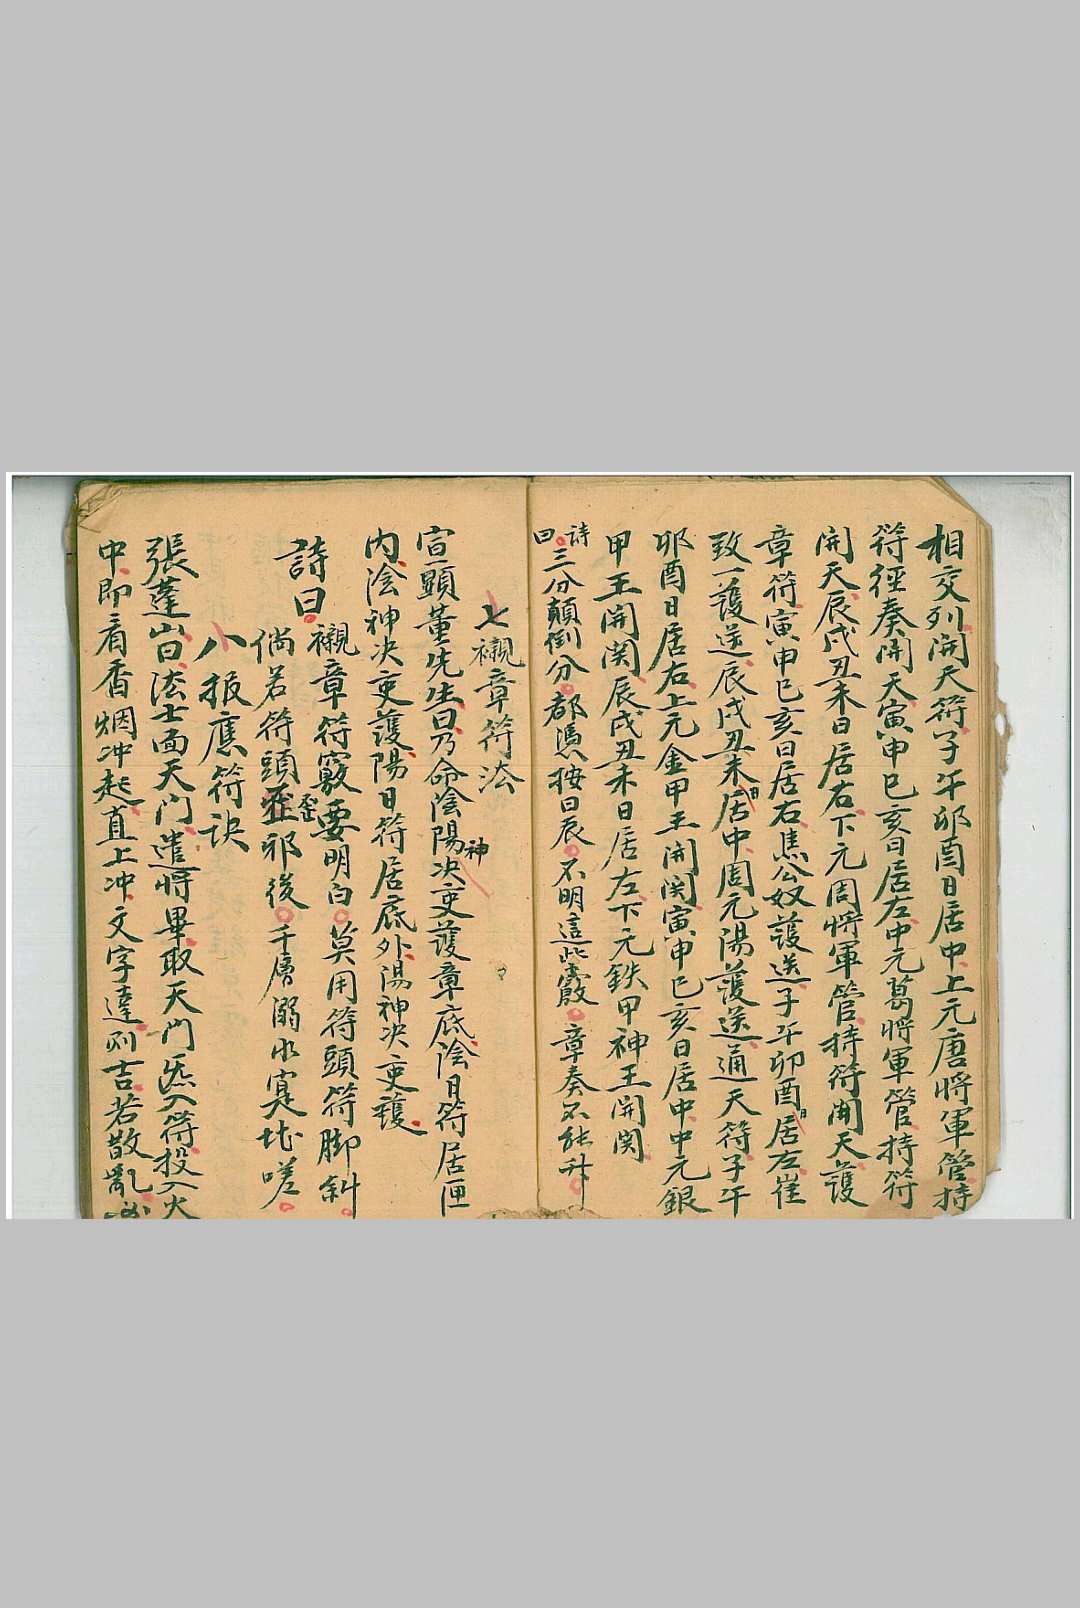 相交列開天符子午卯酉日居中上元唐將軍管持
符徑奏開天寅申巳亥日居左中元葛將軍管持符
開天辰戌丑未日居右下元周將軍管持符開天護
章符寅申巳亥日居右焦公奴護送子午卯酉日居左崔
致一護送辰戌丑未日居中周元陽護送通天符子午
卯酉日居右上元金甲王開関寅申巳亥日居中中元銀
甲王開関辰戌丑未日居左下元鉄甲神王開関
詩曰三分顛倒分都馮按日辰不明這些竅章奏不能升
七襯章符法
宣顯董先生曰乃命陰陽神决吏護章底陰日符居匣
内陰神决吏護陽日符居底外陽神决吏護
詩曰襯章符竅要明白莫用符頭符脚斜
倘若符頭歪邪後千層溺水寔堪嗟
八報應符訣
張蓬山曰法士面天門遣將畢取天門炁入符投入火
中即看香烟冲起直上冲文字達則吉若散亂